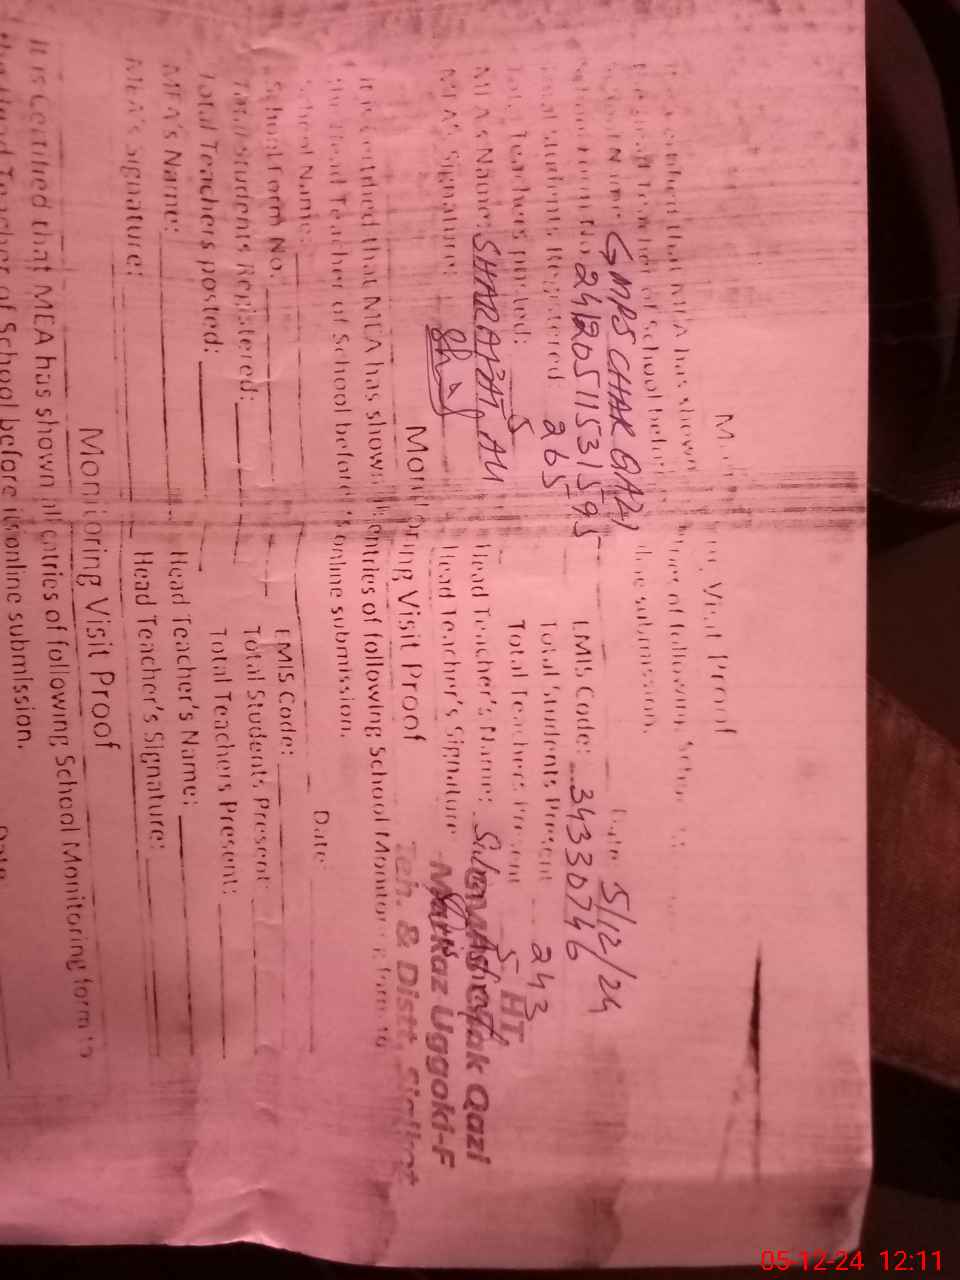 Monitoring Visit Proof
Date: 5/12/24
It is certified that MEA has shown entries of following School
Head Teacher of School before online submission.
School Name: GMPS CHAK QAZI
School Form No. 24120511531595 EMIS Code: 34330746
Total Students Registered 265 Total Students Present 243
Total Teachers posted: 5 Total Teachers Present 5
MEA's Name: SHARAFAT ALI Head Teacher's Name:
MEA's Signature: Head Teacher's Signature:
HT
Chak Qazi
Markaz Uggoki-F
Teh. & Distt. Sialkot
Monitoring Visit Proof
Date:
It is certified that MEA has shown all entries of following School Monitoring form to
the Head Teacher of School before its online submission.
School Name:
School Form No: EMIS Code:
Total Students Registered: Total Students Present:
Total Teachers posted: Total Teachers Present:
MEA's Name: Head Teacher's Name:
MEA's Signature: Head Teacher's Signature:
Monitoring Visit Proof
It is certified that MEA has shown all entries of following School Monitoring form to
the Head Teacher of School before its online submission.
Date
05-12-24 12:11